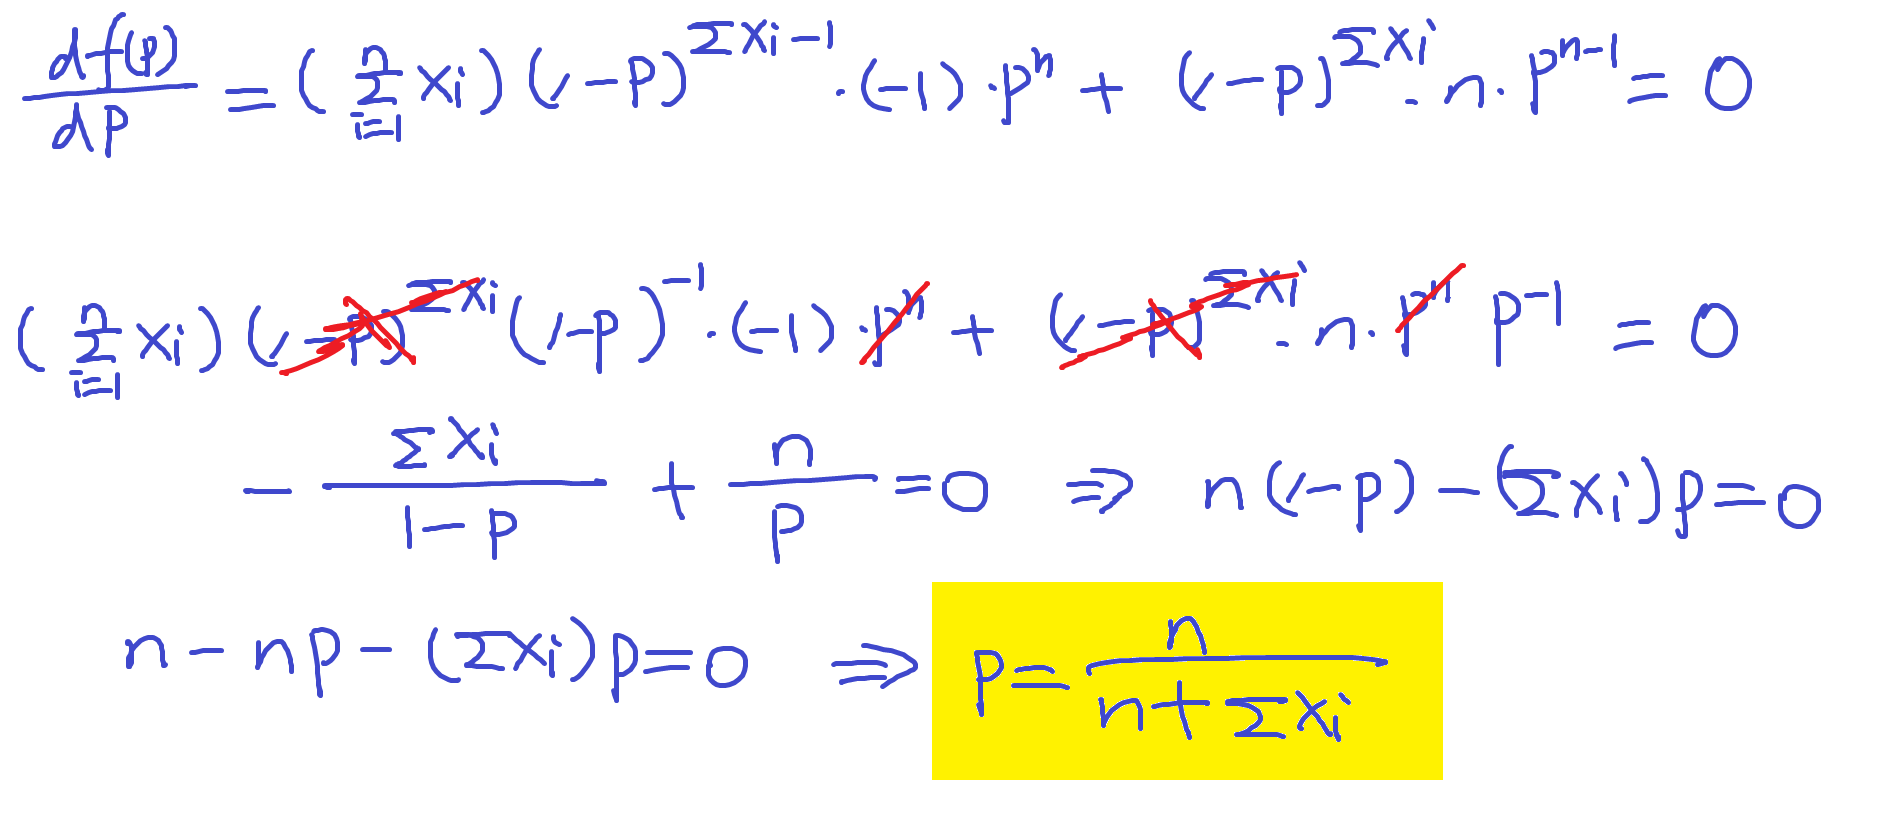 df(p)/dp = (∑_{i=1}^{n} xi) (1-p)^{∑xi-1} · (-1) · p^n + (1-p)^{∑xi} · n · p^{n-1} = 0
(∑_{i=1}^{n} xi) (1-p)^{∑xi} (1-p)^{-1} · (-1) · p^n + (1-p)^{∑xi} · n · p^n p^{-1} = 0
- ∑xi/(1-p) + n/p = 0 ⇒ n(1-p) - (∑xi)p = 0
n - np - (∑xi)p = 0 ⇒ p = n/(n+∑xi)